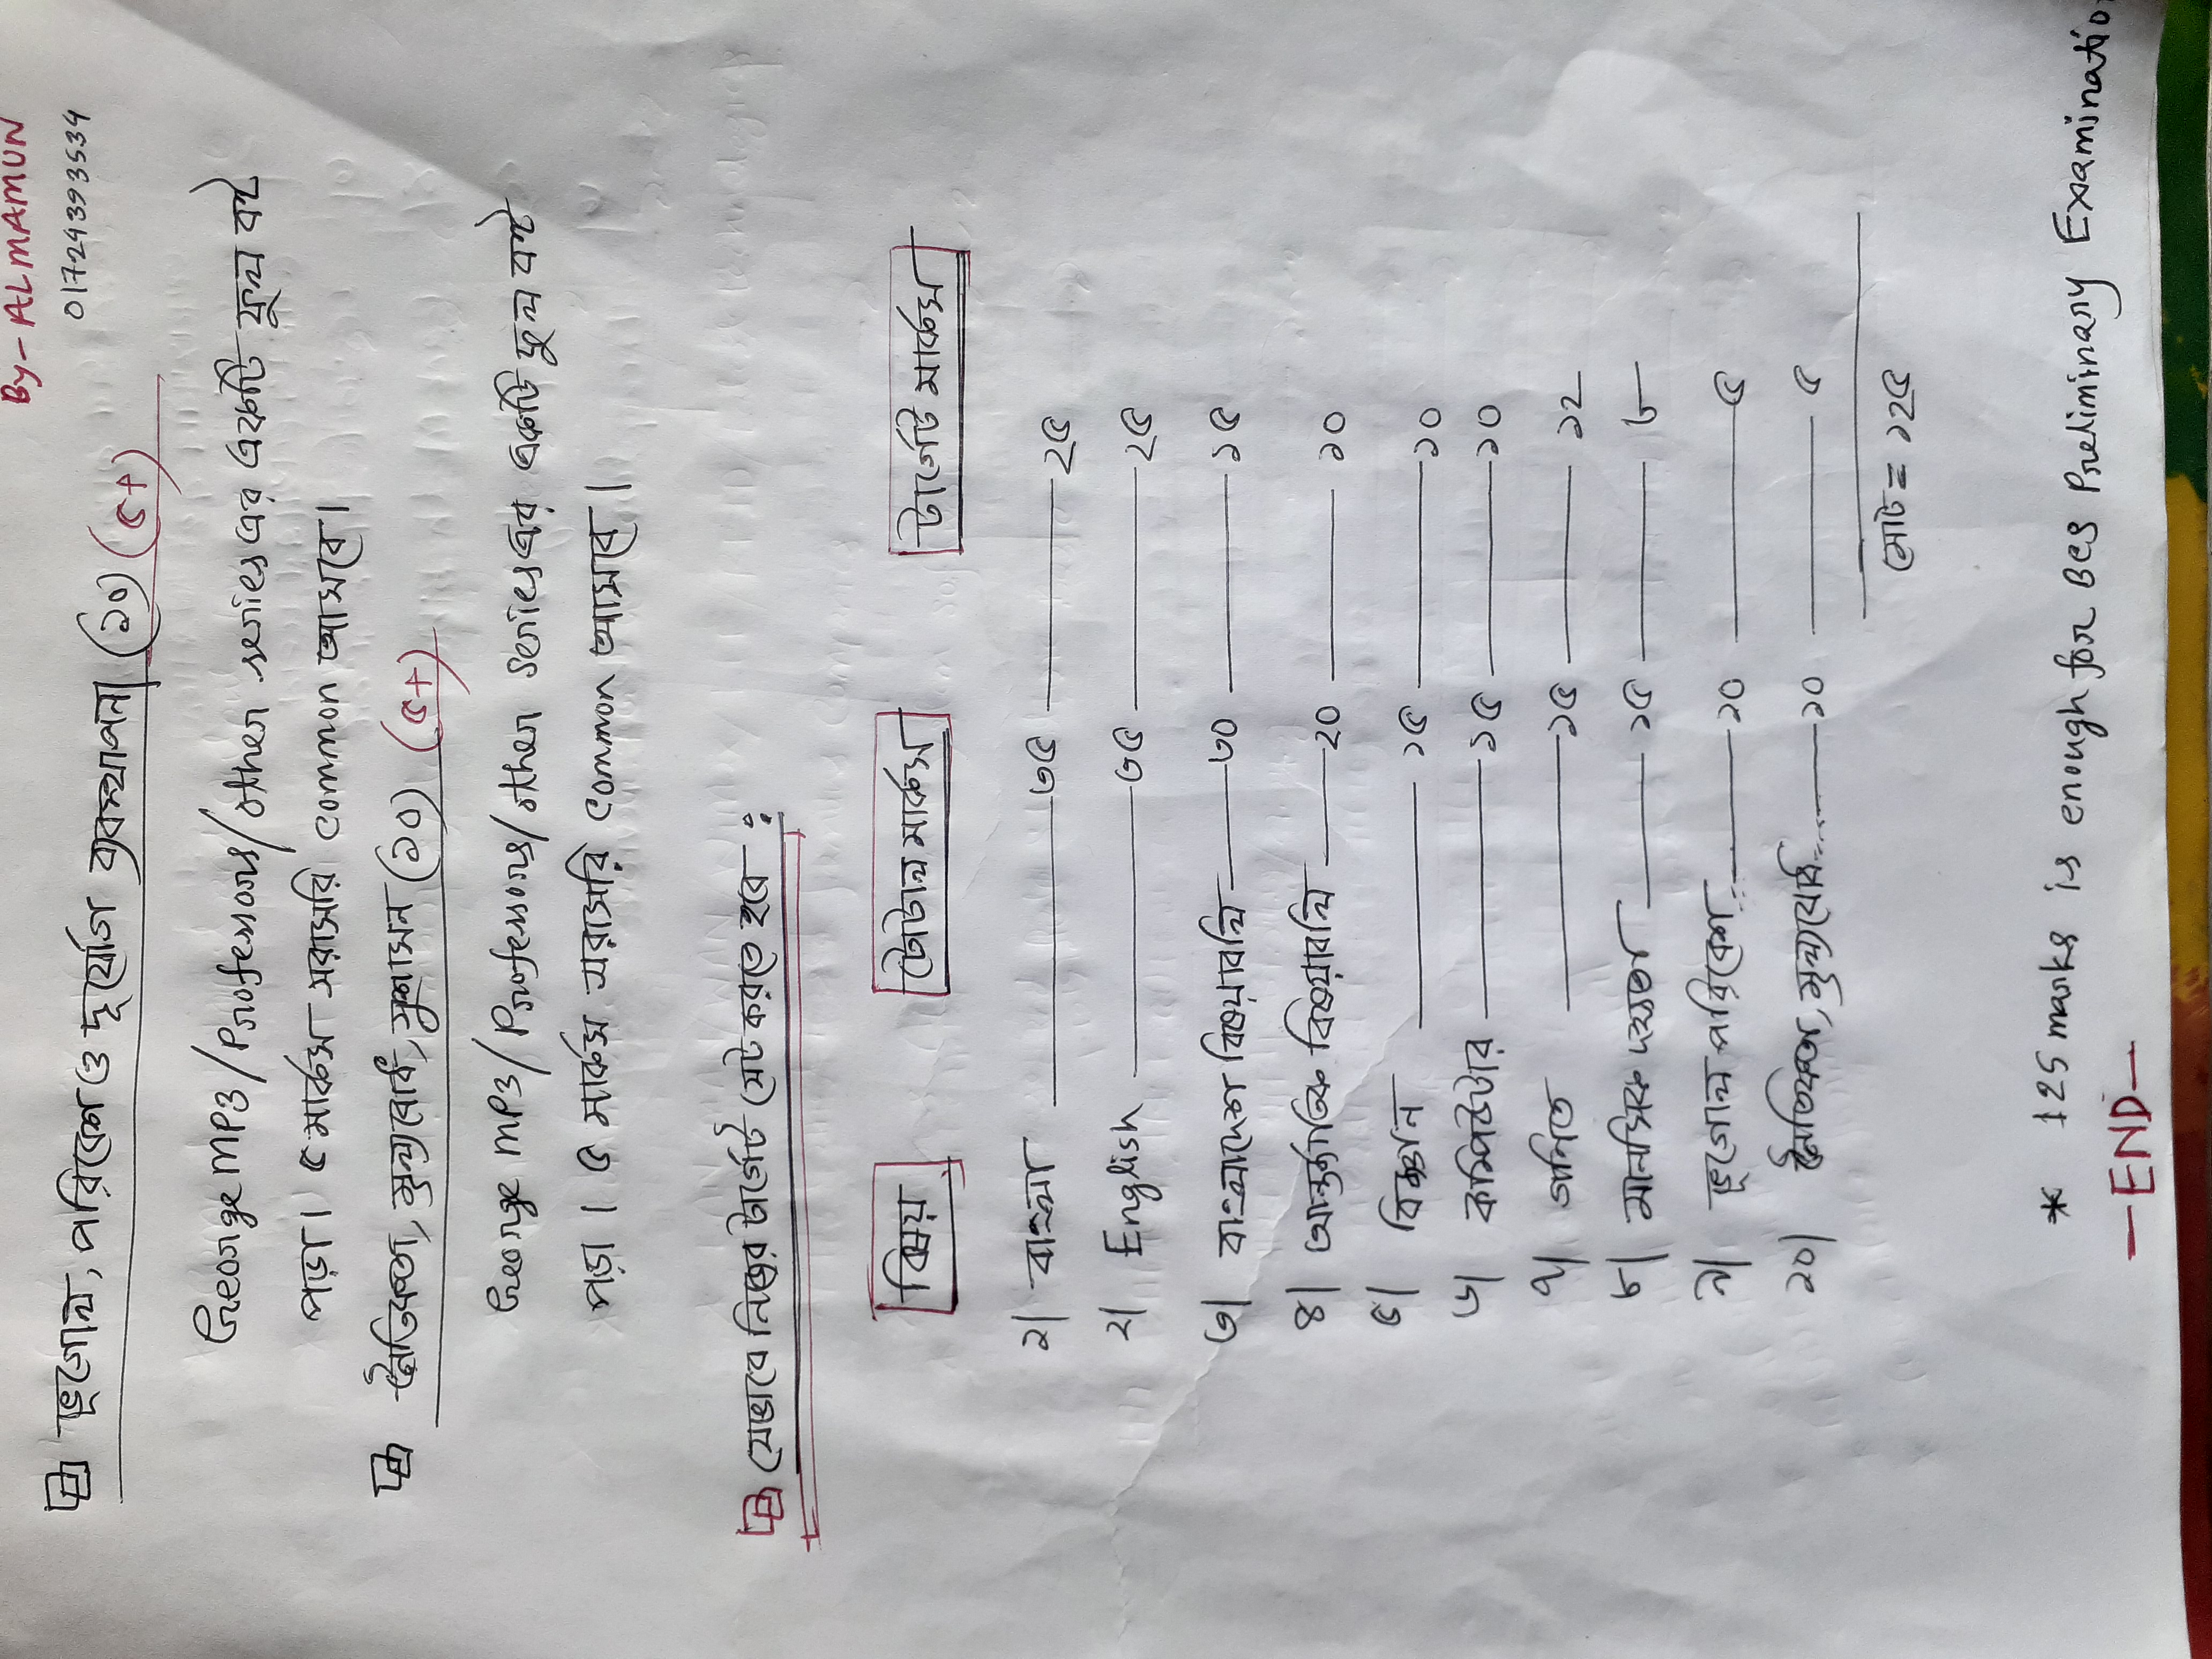 By- ALMAMUN
01724393534
ভূগোল, পরিবেশ ও দূর্যোগ ব্যবস্থাপনা (১০) (৫+)
George MP3/Professors/other series এর একটি মূল বই
পড়া। ৫ মার্কস সরাসরি common আসবে।
নৈতিকতা, মূল্যবোধ, সুশাসন (১০) (৫+)
George MP3/Professors/other series এর একটি মূল বই
পড়া। ৫ মার্কস সরাসরি common আসবে।
যেভাবে নিজের টার্গেট সেট করতে হবে:
বিষয় টোটাল মার্কস টার্গেট মার্কস
১| বাংলা ৩৫ ২৫
২| English ৩৫ ২৫
৩| বাংলাদেশ বিষয়াবলি ৩০ ১৫
৪| আন্তর্জাতিক বিষয়াবলি ২০ ১০
৫| বিজ্ঞান ১৫ ১০
৬| কম্পিউটার ১৫ ১০
৭| গনিত ১৫ ১২
৮| মানসিক দক্ষতা ১৫ ৮
৯| ভূগোল পরিবেশ ১০ ৫
১০| নৈতিকতা, মূল্যবোধ ১০ ৫
মোট = ১২৫
* 125 marks is enough for BCS Preliminary Examination
-END-